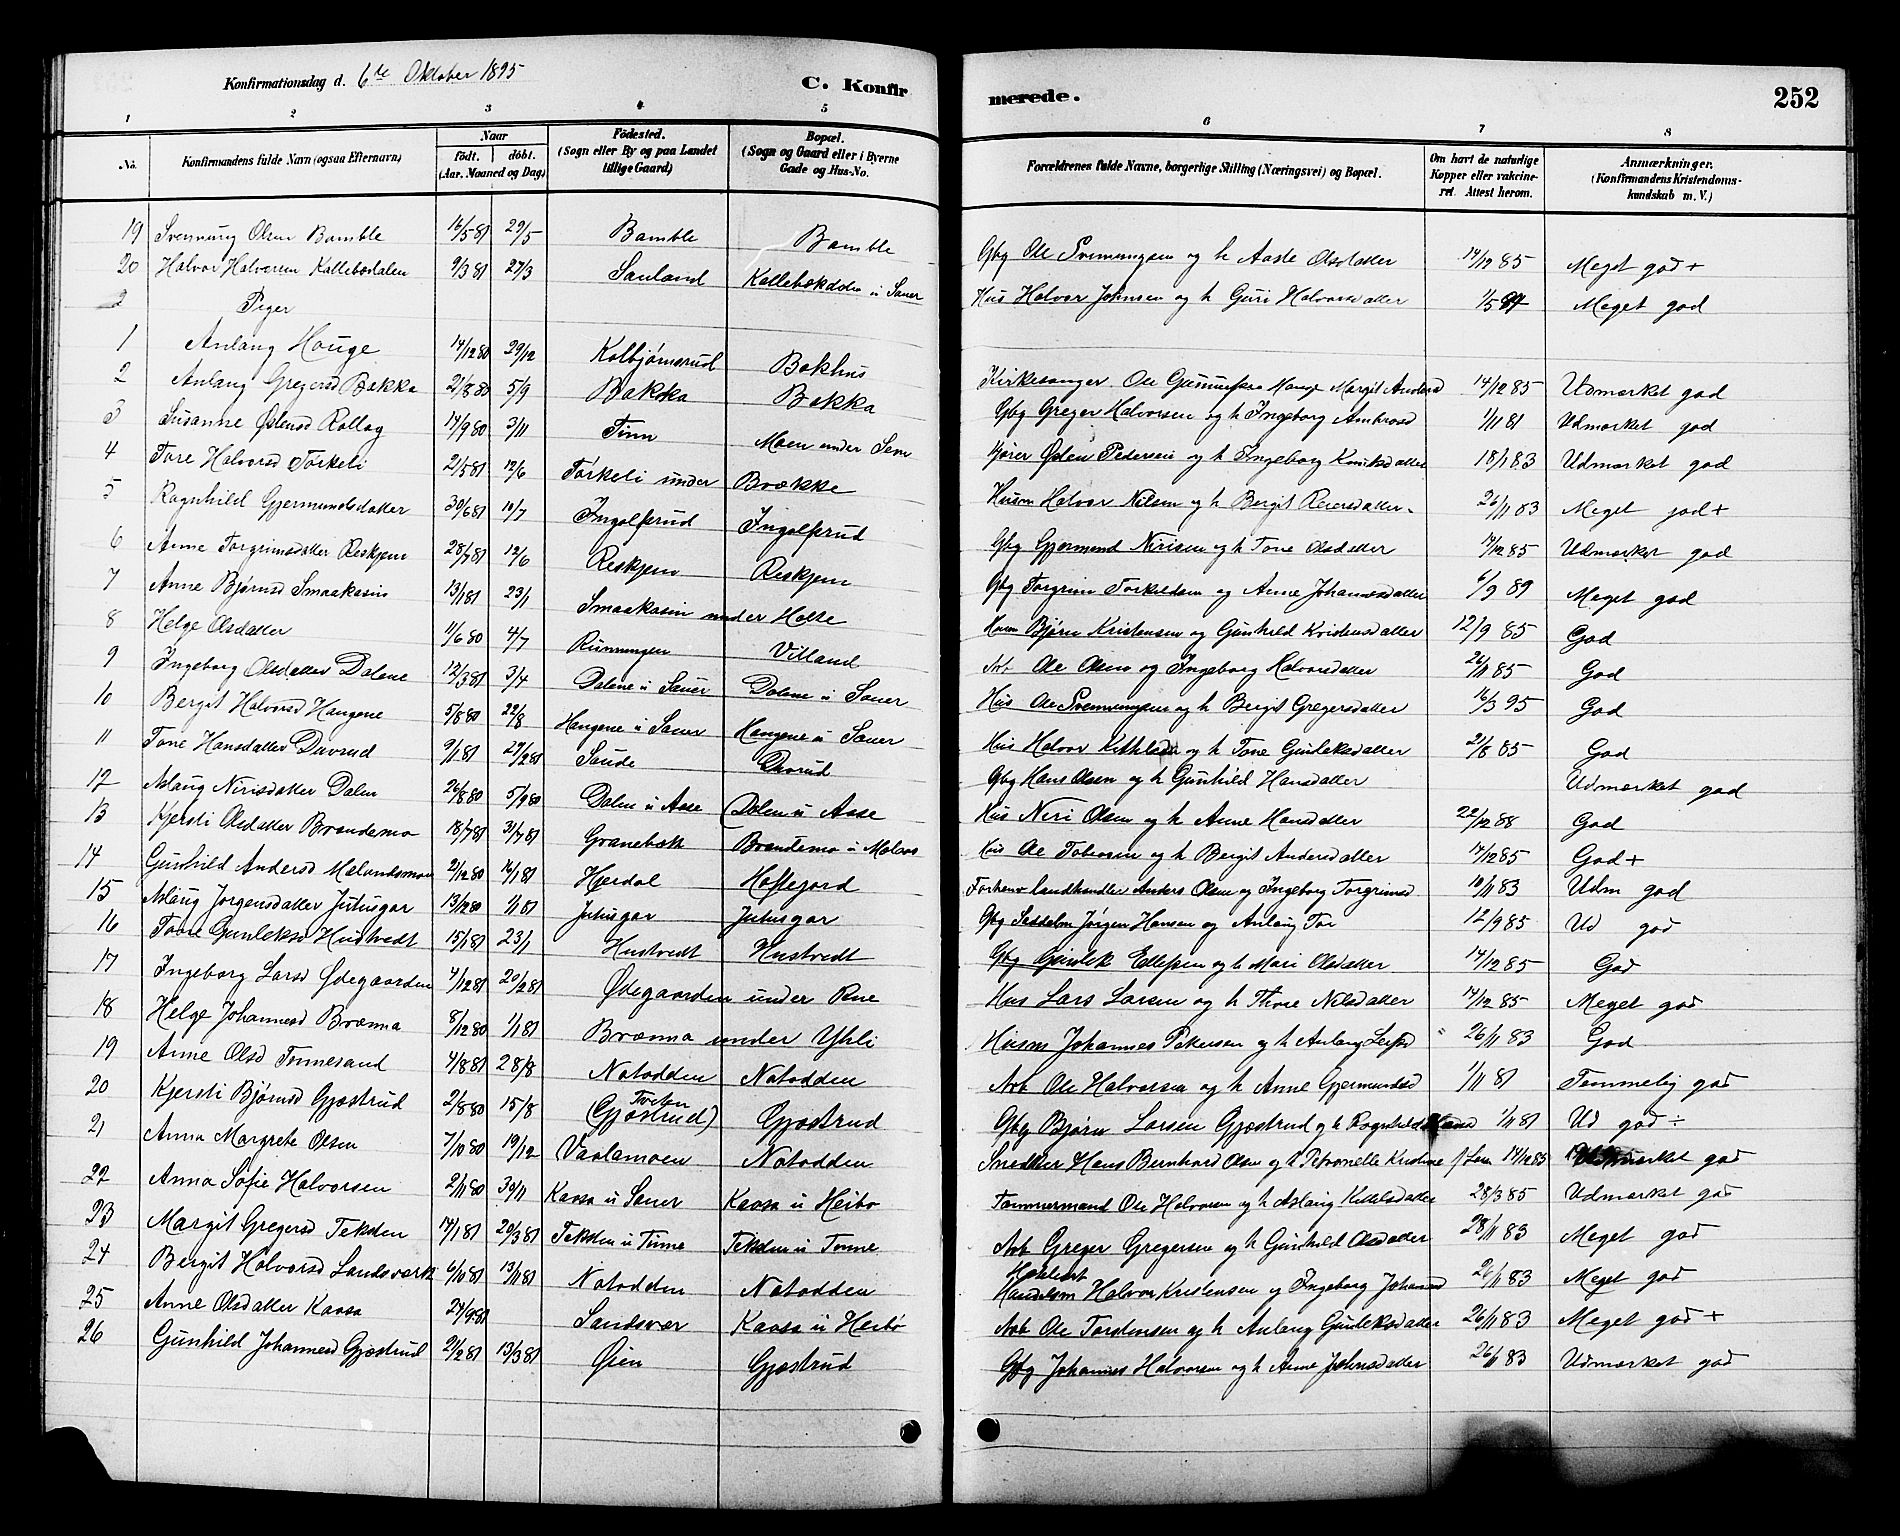 Konfirmationsdag d. 6te Oktober 1895
C. Konfirmerede.
252
1 2 3 4 5 6 7 8
No. Konfirmandens fulde Navn (ogsaa Efternavn) Naar födt. döbt. (Aar. Maaned og Dag) Födested. (Sogn eller By og paa Landet tillige Gaard) Bopæl. (Sogn og Gaard eller i Byerne Gade og Hus-No. Forældrenes fulde Navne, borgerlige Stilling (Næringsvei) og Bopæl. Om havt de naturlige Kopper eller vakcineret. Attest herom. Anmærkninger. (Konfirmandens Kristendomskundskab m. V.)
19 Svennung Olsen Bamble 16/5 81 29/5 Bamble Bamble Gbg Ole Svennungsen og h Aaste Olsdatter 14/12 85 Meget god +
20 Halvor Halvorsen Kallebækdalen 9/3 81 27/3 Sauland Kallebækdalen u Sauer Hus Halvor Johnsen og h Guri Halvorsdatter 1/5 84 Meget god
2 Piger
1 Anlaug Hauge 14/12 80 29/12 Kolbjørnsrud Bakhus Kirkesanger Ole Gunnulfsen Hauge Margit Andersd 14/12 85 Udmærket god
2 Anlaug Gregersd Bakka 21/8 80 5/9 Bakka Bakka Gbg Greger Halvorsen og h Ingeborg Ambrosd 1/11 81 Udmærket god
3 Susanne Østensd Rollag 14/9 80 3/11 Tinn Moen under Sem Kjører Østen Pedersen og h Ingeborg Knutsdatter 18/1 83 Udmærket god
4 Tore Halvorsd Torkeli 21/5 81 12/6 Torkeli under Brække Husm Halvor Nilsen og h Bergit Reiersdatter 26/11 83 Meget god +
5 Ragnhild Gjermundsdatter 30/6 81 10/7 Ingolfsrud Ingolfsrud Gbg Gjermund Nirisen og h Tone Olsdatter 14/12 85 Udmærket god
6 Anne Torgrimsdatter Reskjem 28/7 81 12/6 Reskjem Reskjem Gbg Torgrim Torkildsen og Anne Johannesdatter 6/9 89 Meget god
7 Anne Bjørnsd Smaakasin 13/1 81 23/1 Smaakasin under Holte Husm Bjørn Kristensen og Gunhild Kristensdatter 12/9 85 God
8 Helge Olsdatter 11/6 80 4/7 Runningen Villand Arb Ole Olsen og Ingeborg Halvorsdatter 26/11 85 God
9 Ingeborg Olsdatter Dalene 12/3 81 3/4 Dalene u Sauer Dalene u Sauer Hus Ole Svennungsen og h Bergit Gregersdatter 16/3 95 God
10 Bergit Halvorsd Haugene 5/8 80 22/8 Haugene u Sauer Haugene u Sauer Hus Halvor Kittilsen og h Tone Gunleksdatter 21/8 85 God
11 Tone Hansdatter Duvrud 9/1 81 27/2 81 Saude Duvrud Gbg Hans Olsen og h Gunhild Hansdatter Udmærket god
12 Aslaug Nirisdatter Dalen 26/8 80 5/9 80 Dalen u Aase Dalen u Aase Hus Niri Olsen og h Anne Hansdatter 22/12 88 God
13 Kjersti Olsdatter Brændemo 18/7 81 31/7 81 Granebæk Brændemo u Melaas Hus Ole Tobiasen og h Bergit Andersdatter 14/12 85 God +
14 Gunhild Andersd Melandsmoen 21/12 80 16/1 81 Hjerdal Heftejord Forhenv Landhandler Anders Olsen og Ingeborg Torgrimsd 10/11 83 Udm god
15 Aslaug Jørgensdatter Jutusgar 13/12 80 1/1 81 Jutusgar Jutusgar Gbg Saddelm Jørgen Hansen og Anlaug Tor 12/9 85 Ud god
16 Tone Gunleksd Hustvedt 15/1 81 23/1 Hustvedt Hustvedt Gbg Gunlek Ellefsen og h Mari Olsdatter 14/12 85 God
17 Ingeborg Larsd Ødegaarden 4/12 81 20/2 81 Ødegaarden under Rue Hus Lars Larsen og h Thore Nilsdatter 14/12 85 Meget god
18 Helge Johannesd Brænna 8/12 80 1/1 81 Brænna under Yhli Husm Johannes Pettersen og h Anlaug Leifsd 26/11 83 God
19 Anne Olsd Tinnesand 4/8 81 28/8 Notodden Notodden Arb Ole Halvorsen og h Anne Gjermundsd 1/11 81 Temmelig god
20 Kjersti Bjørnsd Gjøstrud 2/8 80 15/8 Tveten (Gjøstrud) Gjøstrud Gbg Bjørn Larsen Gjøstrud og h Ragnhild 1/11 81 Ud god ÷
21 Anna Margrete Olsen 7/10 80 19/12 Vaalamoen Notodden Snedker Hans Bernhard Olsen og h Petronelle Kristine f. 14/12 85 Udmærket god
22 Anna Sofie Halvorsen 2/11 80 30/11 Kaasa u Sauer Kaasa u Heibø Tømmermand Ole Halvorsen og h Aslaug Kittelsdatter 28/3 85 Udmærket god
23 Margit Gregersd Teksten 14/1 81 20/3 81 Teksten u Tinne Teksten u Tinne Arb Greger Gregersen og h Gunhild Olsdatter 28/11 83 Meget god
24 Bergit Halvorsd Landsværk 6/10 81 13/11 81 Notodden Notodden Handelsm Halvor Kristensen og Ingeborg Johannesd 26/11 83 Meget god
25 Anne Olsdatter Kaasa 24/9 81 Sandsvær Kaasa u Heibø Arb Ole Torstensen og h Anlaug Gunleksdatter 26/11 83 Meget god +
26 Gunhild Johannesd Gjøstrud 21/2 81 13/3 81 Øien Gjøstrud Gbg Johannes Halvorsen og h Anne Johnsdatter 26/11 83 Udmærket god